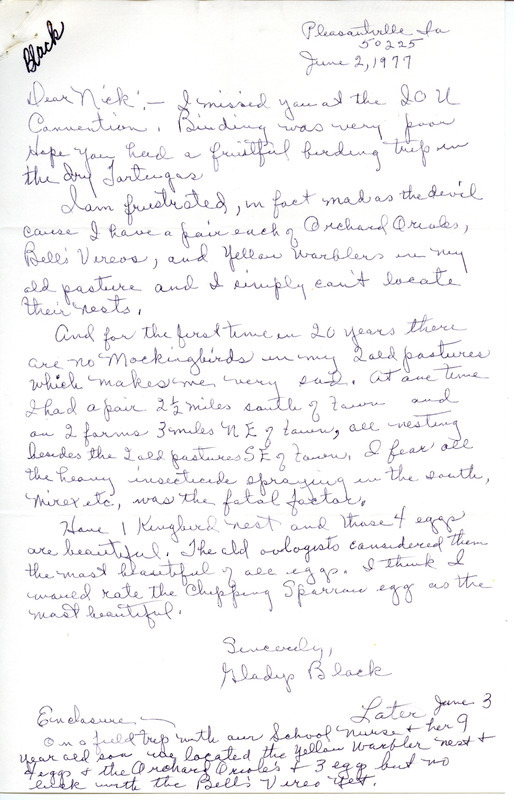 Black
Pleasantville Ia
50225
June 2, 1977
Dear Nick:- I missed you at the IOU
Convention. Birding was very poor
Hope you had a fruitful birding trip in
the Dry Tortugas
I am frustrated, in fact mad as the devil
cause I have a pair each of Orchard Orioles,
Bell's Vireos, and Yellow Warblers in my
old pasture and I simply can't locate
their nests.
And for the first time in 20 years there
are no Mockingbirds in my 2 old pastures
which makes me very sad. At one time
I had a pair 2½ miles south of town and
on 2 farms 3 miles NE of town, all nesting
besides the 2 old pastures SE of town. I fear all
the heavy insecticide spraying in the south,
Mirex etc, was the fatal factor.
Have 1 Kingbird nest and those 4 eggs
are beautiful. The old oologists considered them
the most beautiful of all eggs. I think I
would rate the Chipping Sparrow egg as the
most beautiful.
Sincerely,
Gladys Black
Enclosure - Later June 3
On a field trip with our School Nurse & her 9
year old son we located the Yellow Warbler nest &
4 eggs & the Orchard Orioles & 3 egg but no
luck with the Bell's Vireo yet.